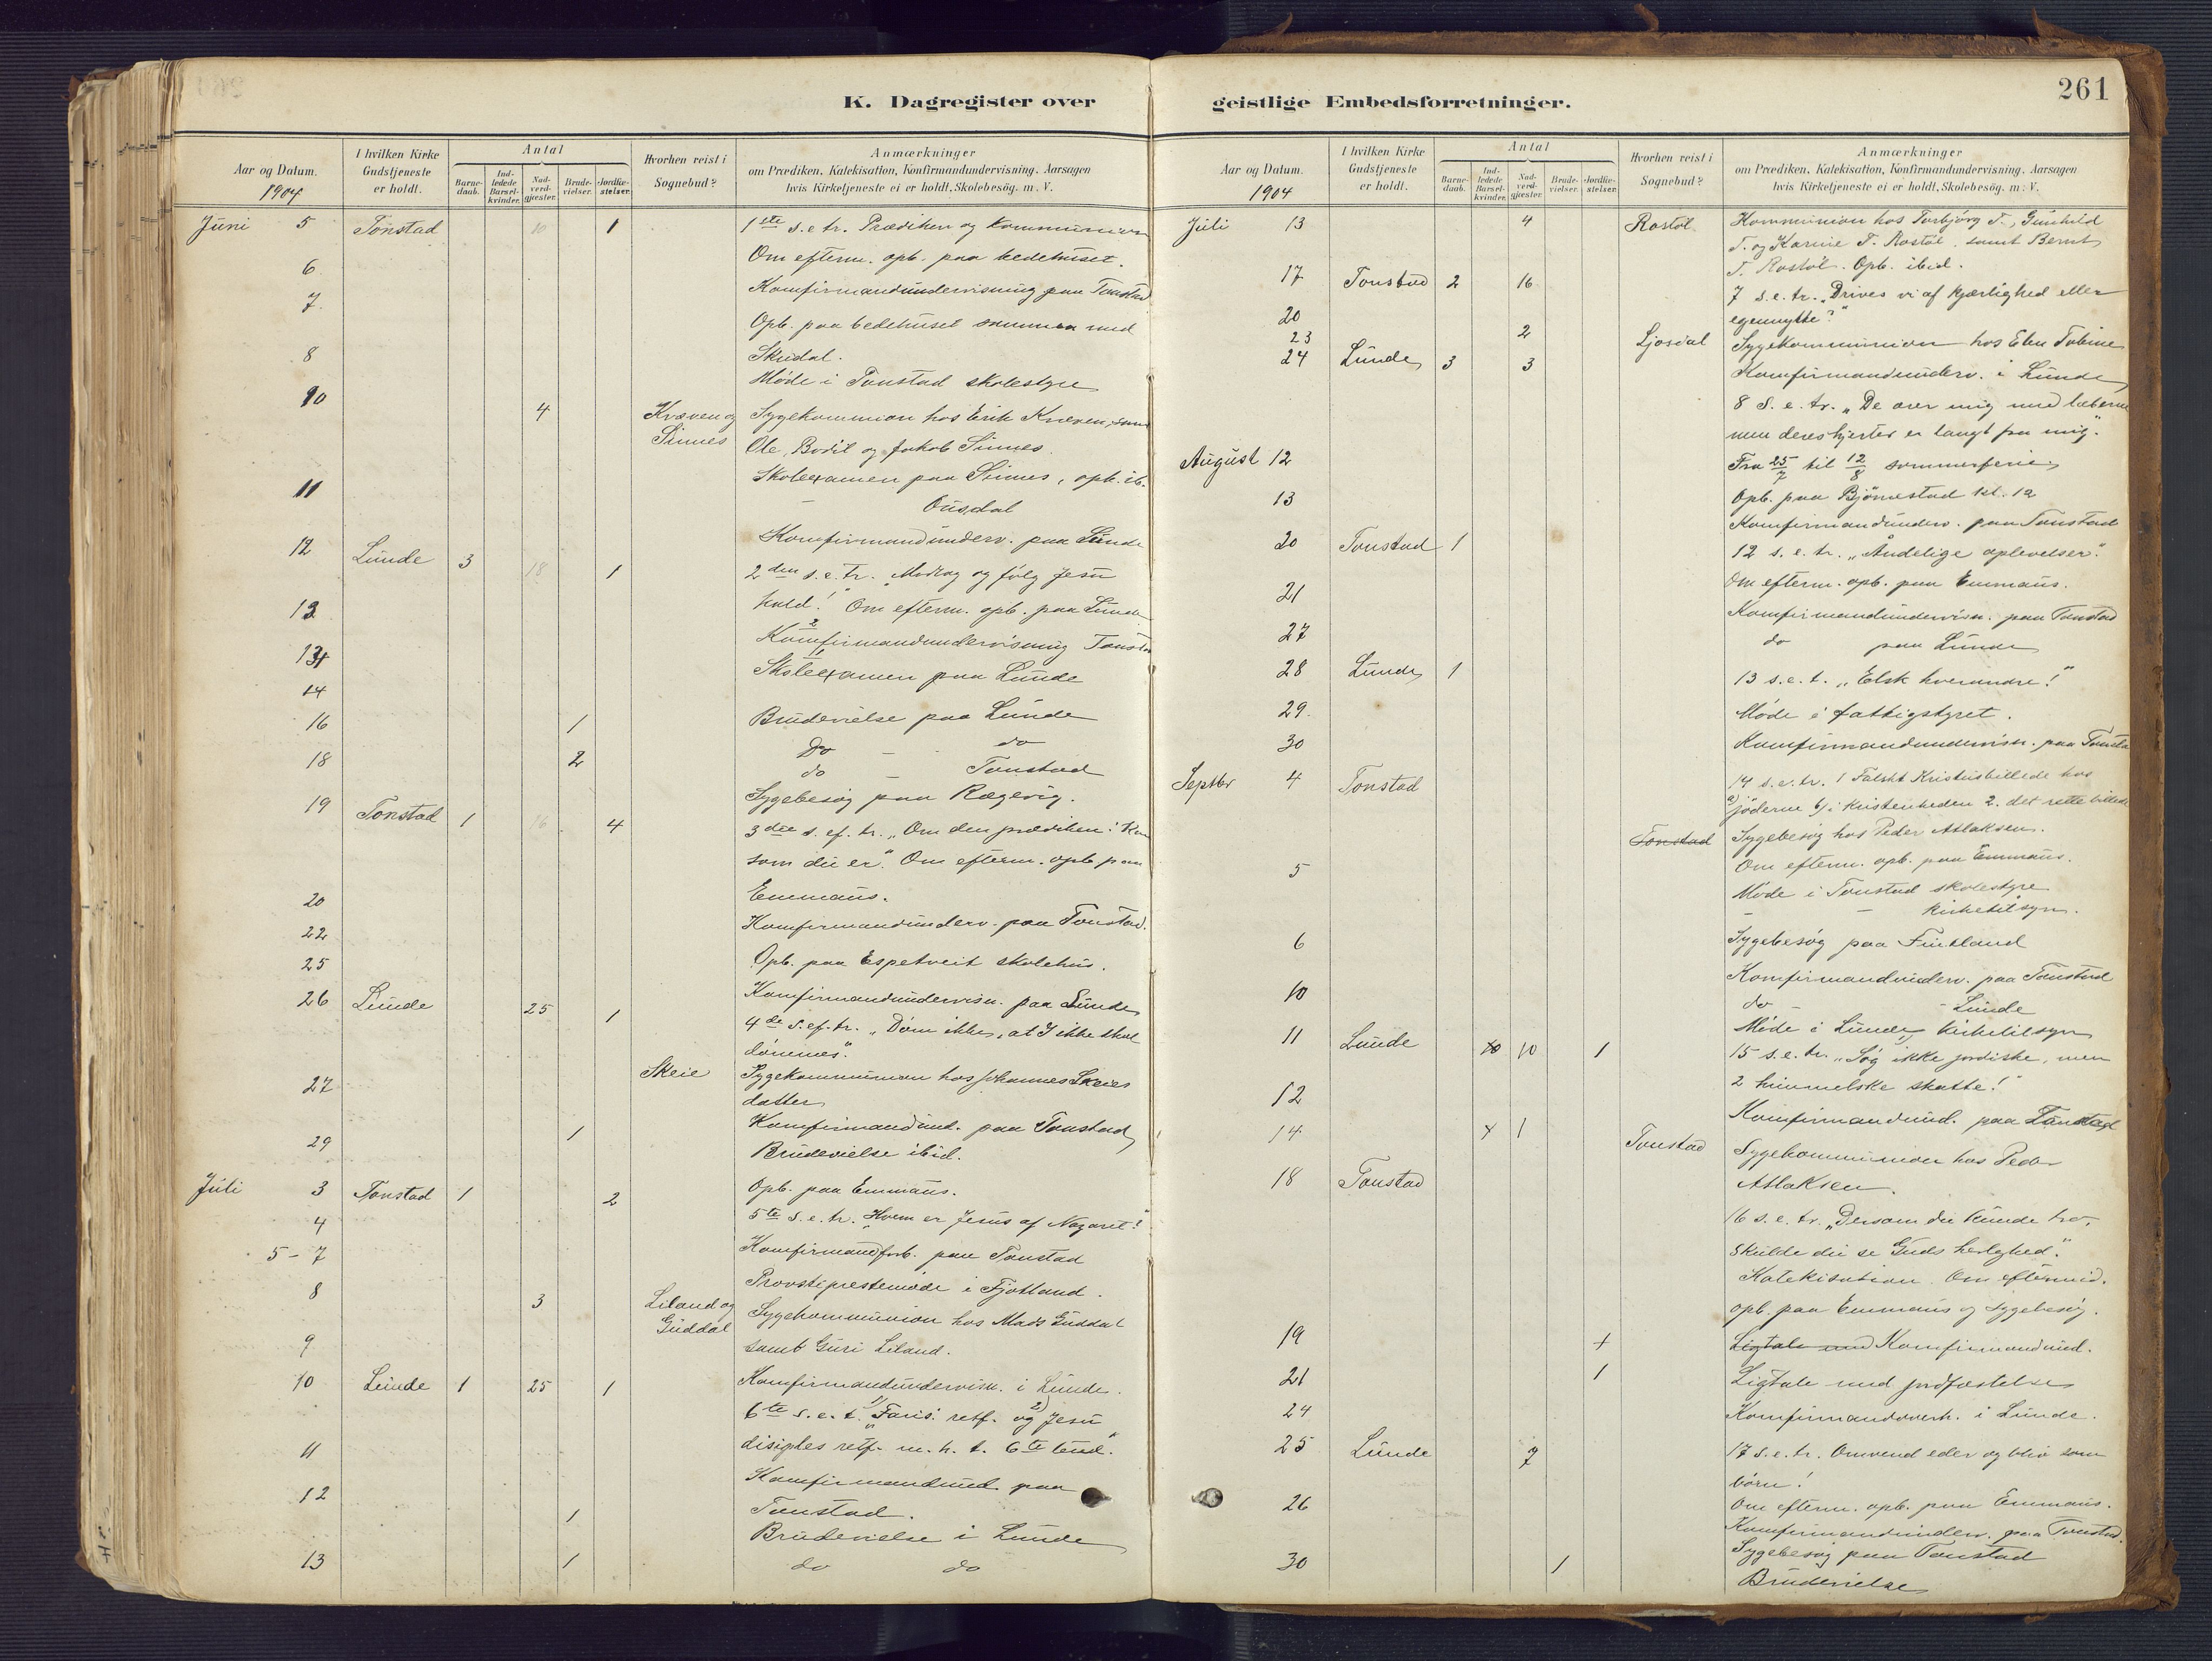 K. Dagregister over
Aar og Datum.
1904
I hvilken Kirke Gudstjeneste er holdt.
Antal
Barnedaab.
Indledede Barselkvinder.
Nadverdgjæster.
Brudevielser.
Jordfæstelser.
Hvorhen reist i Sognebud?
Anmærkninger
om Prædiken, Katekisation, Konfirmandundervisning. Aarsagen
hvis Kirketjeneste ei er holdt. Skolebesög. m. V.
Juni 5 Tonstad 10 1 1ste s. e tr. Prædiken og kommunion
Om efterm. opb. paa bedehuset.
6 Konfirmandundervisning paa Tonstad
7 Opb. paa bedehuset sammen med
Skridal.
8 Møde i Tonstad skolestyre
10 4 Kvæven og Sinnes Sygekommion hos Erik Kvæven, samt
Ole, Bodil og Jakob Sinnes.
Skoleexamen paa Sinnes, opb. ib.
11 – Ousdal
Konfirmandunderv. paa Lunde
12 Lunde 3 18 1 2den s. e. tr. "Modtag og følg Jesu
kald!" Om efterm. opb. paa Lunde
13 Konfirmandundervisning Tonstad
13 Skoleexamen paa Lunde
14
16 1 Brudevielse paa Lunde
Do – do
18 2 do – Tonstad
Sygebesøg paa Rægevig.
19 Tonstad 1 16 4 3die s. ef. tr. "Om den prædiken: Kom
som du er". Om efterm. opb. paa
Emmaus.
20 Konfirmandunderv. paa Tonstad.
22 Opb. paa Espetveit skolehus.
25 Konfirmandundervisn. paa Lunde
26 Lunde 25 1 4de s. ef. tr. "Døm ikke, at I ikke skal
dømmes".
27 Skeie Sygekommunion hos Johannes Skeies
datter
Konfirmandund. paa Tonstad
29 1 Brudevielse ibid.
Opb. paa Emmaus.
Juli 3 Tonstad 1 2 5te s. e. tr. "Hvem er Jesus af Nazaret!"
4 Konfirmandforb. paa Tonstad
5–7 Provstiprestemøde i Fjotland.
8 3 Liland og Guddal Sygekommunion hos Mads Guddal
samt Guri Liland.
9 Konfirmandundervisn. i Lunde.
10 Lunde 1 25 1 6te s. e. t. 1) "Faris. retf. og 2) Jesu
disiples retf. m. h. t. 6te bud."
11 Konfirmandund. paa
Tonstad.
12 1 Brudevielse i Lunde
13 1 do do
geistlige Embedsforretninger.
261
Aar og Datum.
1904
I hvilken Kirke Gudstjeneste er holdt.
Antal
Barnedaab.
Indledede Barselkvinder.
Nadverdgjæster.
Brudevielser.
Jordfæstelser.
Hvorhen reist i Sognebud?
Anmærkninger
om Prædiken, Katekisation, Konfirmandundervisning. Aarsagen
hvis Kirketjeneste ei er holdt. Skolebesög. m. V.
Juli 13 4 Rostøl Kommunion hos Torbjørg T., Gunhild
T. og Karine T. Rostøl. samt Bernt
T. Rostøl. Opb. ibid.
17 Tonstad 2 16 7 s. e. tr. "Drives vi af kjærlighed eller
egennytte?"
20
23 2 Ljosdal Sygekommunion hos Elen Tobine
Konfirmandunderv. i Lunde
24 Lunde 3 3 8 S. e. tr. "De ærer mig med læberne
men deres hjerter er langt fra mig."
August 12 Fra 25/7 til 12/8 sommerferie
Opb. paa Bjørnestad kl. 12
13 Konfirmandunderv. paa Tonstad
20 Tonstad 1 12 s. e. tr. "Åndelige oplevelser."
Om efterm. opb. paa Emmaus.
21 Konfirmandundervisn. paa Tonstad
27 do paa Lunde
28 Lunde 1 13 s. e. t. "Elsk hverandre!"
29. Møde i fattigstyret.
30 Konfirmandundervisn. paa Tonstad
Septbr 4 Tonstad 14 s. e. tr. 1 Falskt Kristusbillede hos
a) jøderne b) i kristenheden 2. det rette billede
Tonstad Sygebesøg hos Peder Atlaksen.
Om efterm. opb. paa Emmaus.
5 Møde i Tonstad skolestyre
– – kirketilsyn.
6 Sygebesøg paa Fintland
Konfirmandunderv. paa Tonstad
10 do – – Lunde
Møde i Lunde kirketilsyn
11 Lunde 10 10 1 15 s. e. tr. "Søg ikke jordiske, men
2 himmelske skatte!"
12 Konfirmandund. paa Tonstad
14 1 Tonstad Sygekommunion hos Peder
Atlaksen.
18 Tonstad 16 s. e. tr. "Dersom du kunde tro,
skulde du se Guds herlighed."
Katekisation. Om eftermid.
opb. paa Emmaus og sygebesøg.
19 Ligtale med Konfirmandund.
21 1 Ligtale med jordfæstelse
24 Konfirmandoverh. i Lunde.
25 Lunde 7 17 s. e. tr. Omvend eder og bliv som
børn!
Om efterm. opb. paa Emmaus.
26 Konfirmandunderv. paa Tonstad.
Sygebesøg paa Tonstad
30 1 Brudevielse